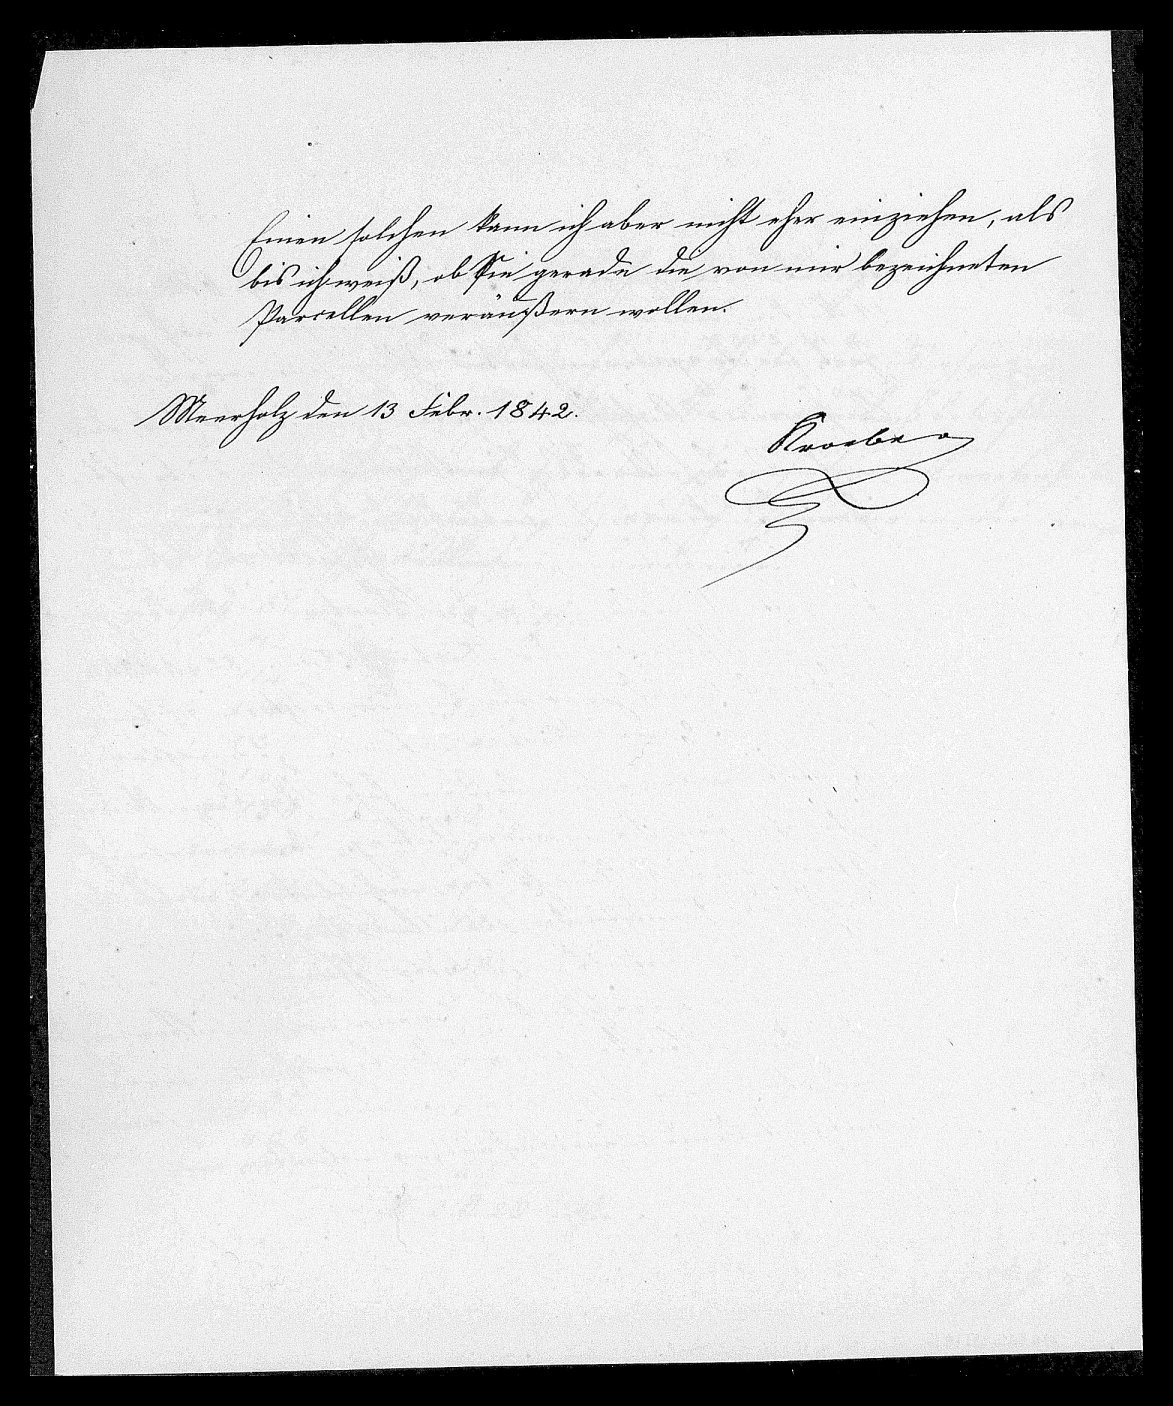 Einen solchen kann ich aber nicht eher einziehen, als
bis ich weiß, ob Sie gerade die von mir bezeichneten
Parcellen veräußern wollen.
Meerholz den 13 Febr. 1842.
Kroeber